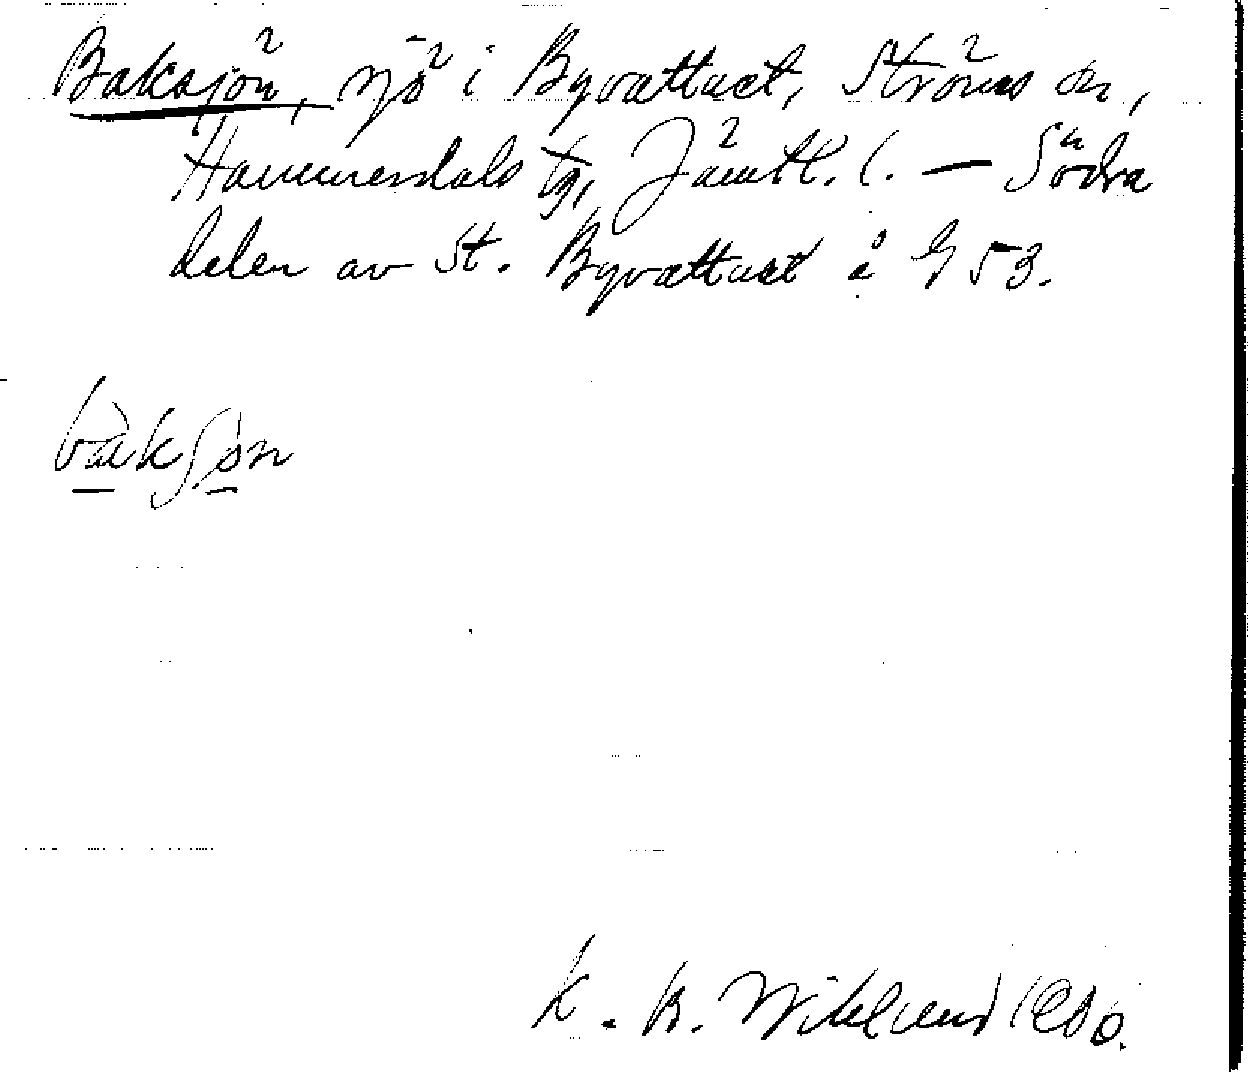 Baksjön, sjö i Byvattnet, Ströms sn,
Hammerdals tg, Jämtl. l. — Södra
delen av St. Byvattnet å G 53.
bàkʃøn
K. B. Wiklund 1906.